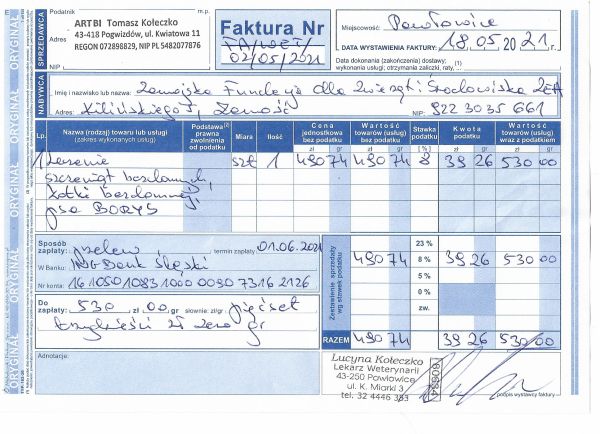 Podatnik m.p.
ARTBI Tomasz Kołeczko
43-418 Pogwizdów, ul. Kwiatowa 11
Adres
REGON 072898829, NIP PL 5482077876
SPRZEDAWCA
ORYGINAŁ · ORYGINAŁ · ORYGINAŁ · ORYGINAŁ
Faktura Nr
FA/WET/
02/05/2021
Miejscowość: Pawłowice
DATA WYSTAWIENIA FAKTURY: 18.05 2021 r.
Data dokonania (zakończenia) dostawy;
wykonania usługi; otrzymania zaliczki, raty,
NABYWCA
Imię i nazwisko lub nazwa: Zamojska Fundacja dla Zwierząt i Środowiska ZEA
Adres: Kilińskiego, Zamość NIP: 922 30 35 661
Lp. Nazwa (rodzaj) towaru lub usługi (zakres wykonanych usług) Podstawa prawna zwolnienia od podatku Miara Ilość Cena jednostkowa bez podatku Wartość towarów (usług) bez podatku Stawka podatku [%] Kwota podatku Wartość towarów (usług) wraz z podatkiem
zł gr zł gr zł gr zł gr
1 Leczenie szt 1 490 74 490 74 8 39 26 530 00
szczeniąt bezdomnych,
kotki bezdomnej,
psa BORYS
Sposób zapłaty: przelew termin zapłaty 01.06.2021
W Banku: ING Bank Śląski
Nr konta: 16 1050 1083 1000 0090 7316 2126
Zestawienie sprzedaży wg stawek podatku
23 %
490 74 8 % 39 26 530 00
5 %
0 %
zw.
Do zapłaty: 530 zł 00 gr słownie: zł/gr pięćset
trzydzieści zł zero gr
RAZEM 490 74 39 26 530 00
Adnotacje:
Lucyna Kołeczko
Lekarz Weterynarii
43-250 Pawłowice
ul. K. Miarki 3
tel. 32 4446 383
podpis wystawcy faktury